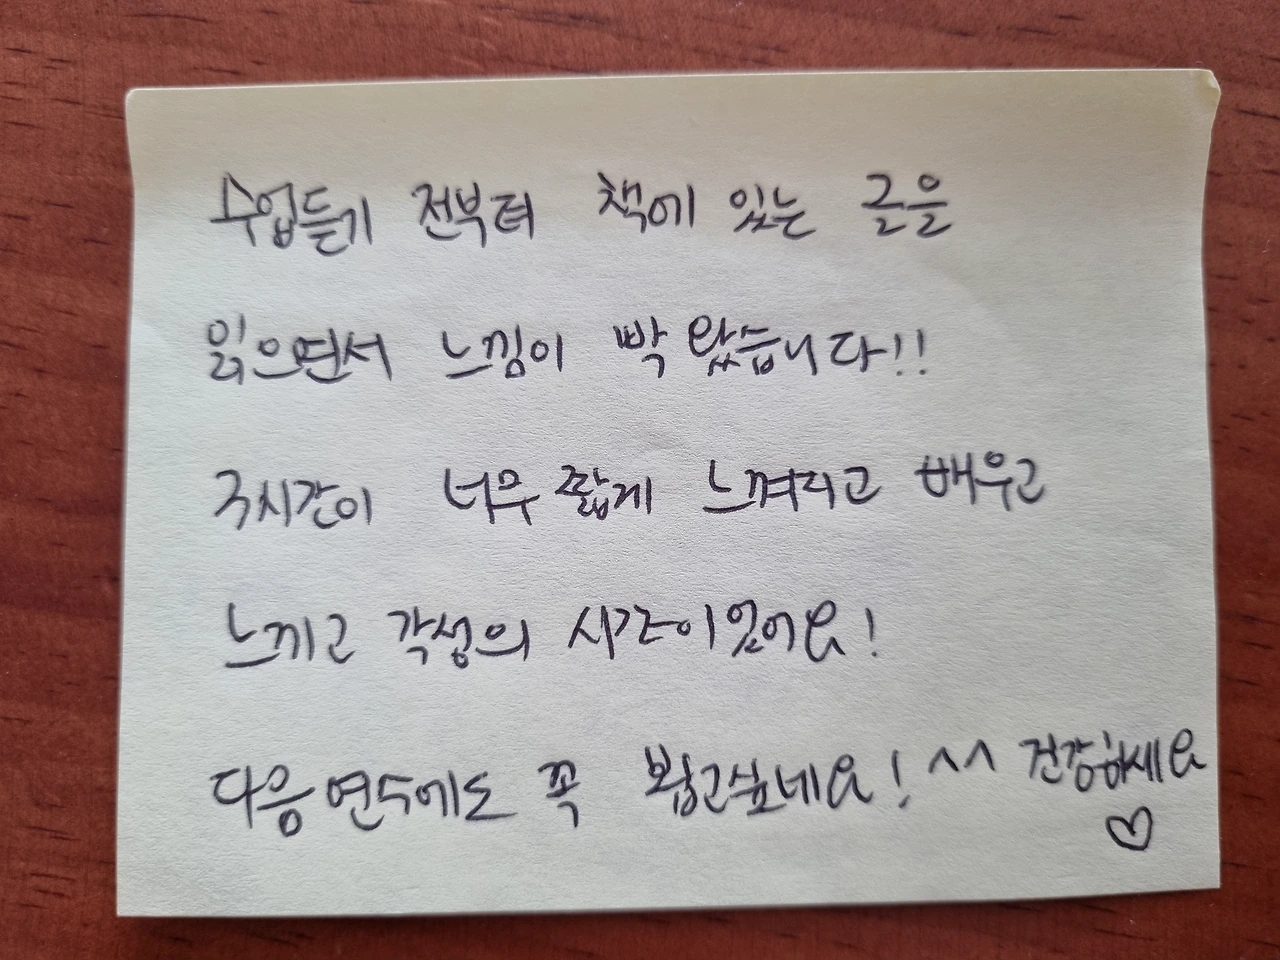 수업듣기 전부터 책에 있는 글을
읽으면서 느낌이 빡 왔습니다!!
3시간이 너무 짧게 느껴지고 배우고
느끼고 각성의 시간이었어요!
다음 연수에도 꼭 뵙고싶네요! ^^ 건강하세요
♡